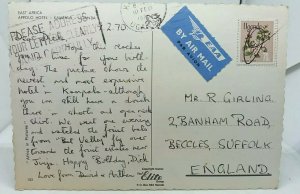 EAST AFRICA
APPOLO HOTEL - KAMPALA
2.70
PLEASE
Hope this reaches
you in time for your birth-
day. The picture shows the
newest and most expensive
hotel in Kampala - although
you can still have a drink
there in shorts and open neck
shirt. We went one evening
and watched the joint
from "Bat Valley" fly over
towards the forest
Jinja. Happy Birthday Dick
Love from David & Anthea
Elite
BY AIR MAIL
PAR AVION
MR R. GIRLING,
2, BANHAM ROAD,
BECCLES, SUFFOLK
ENGLAND